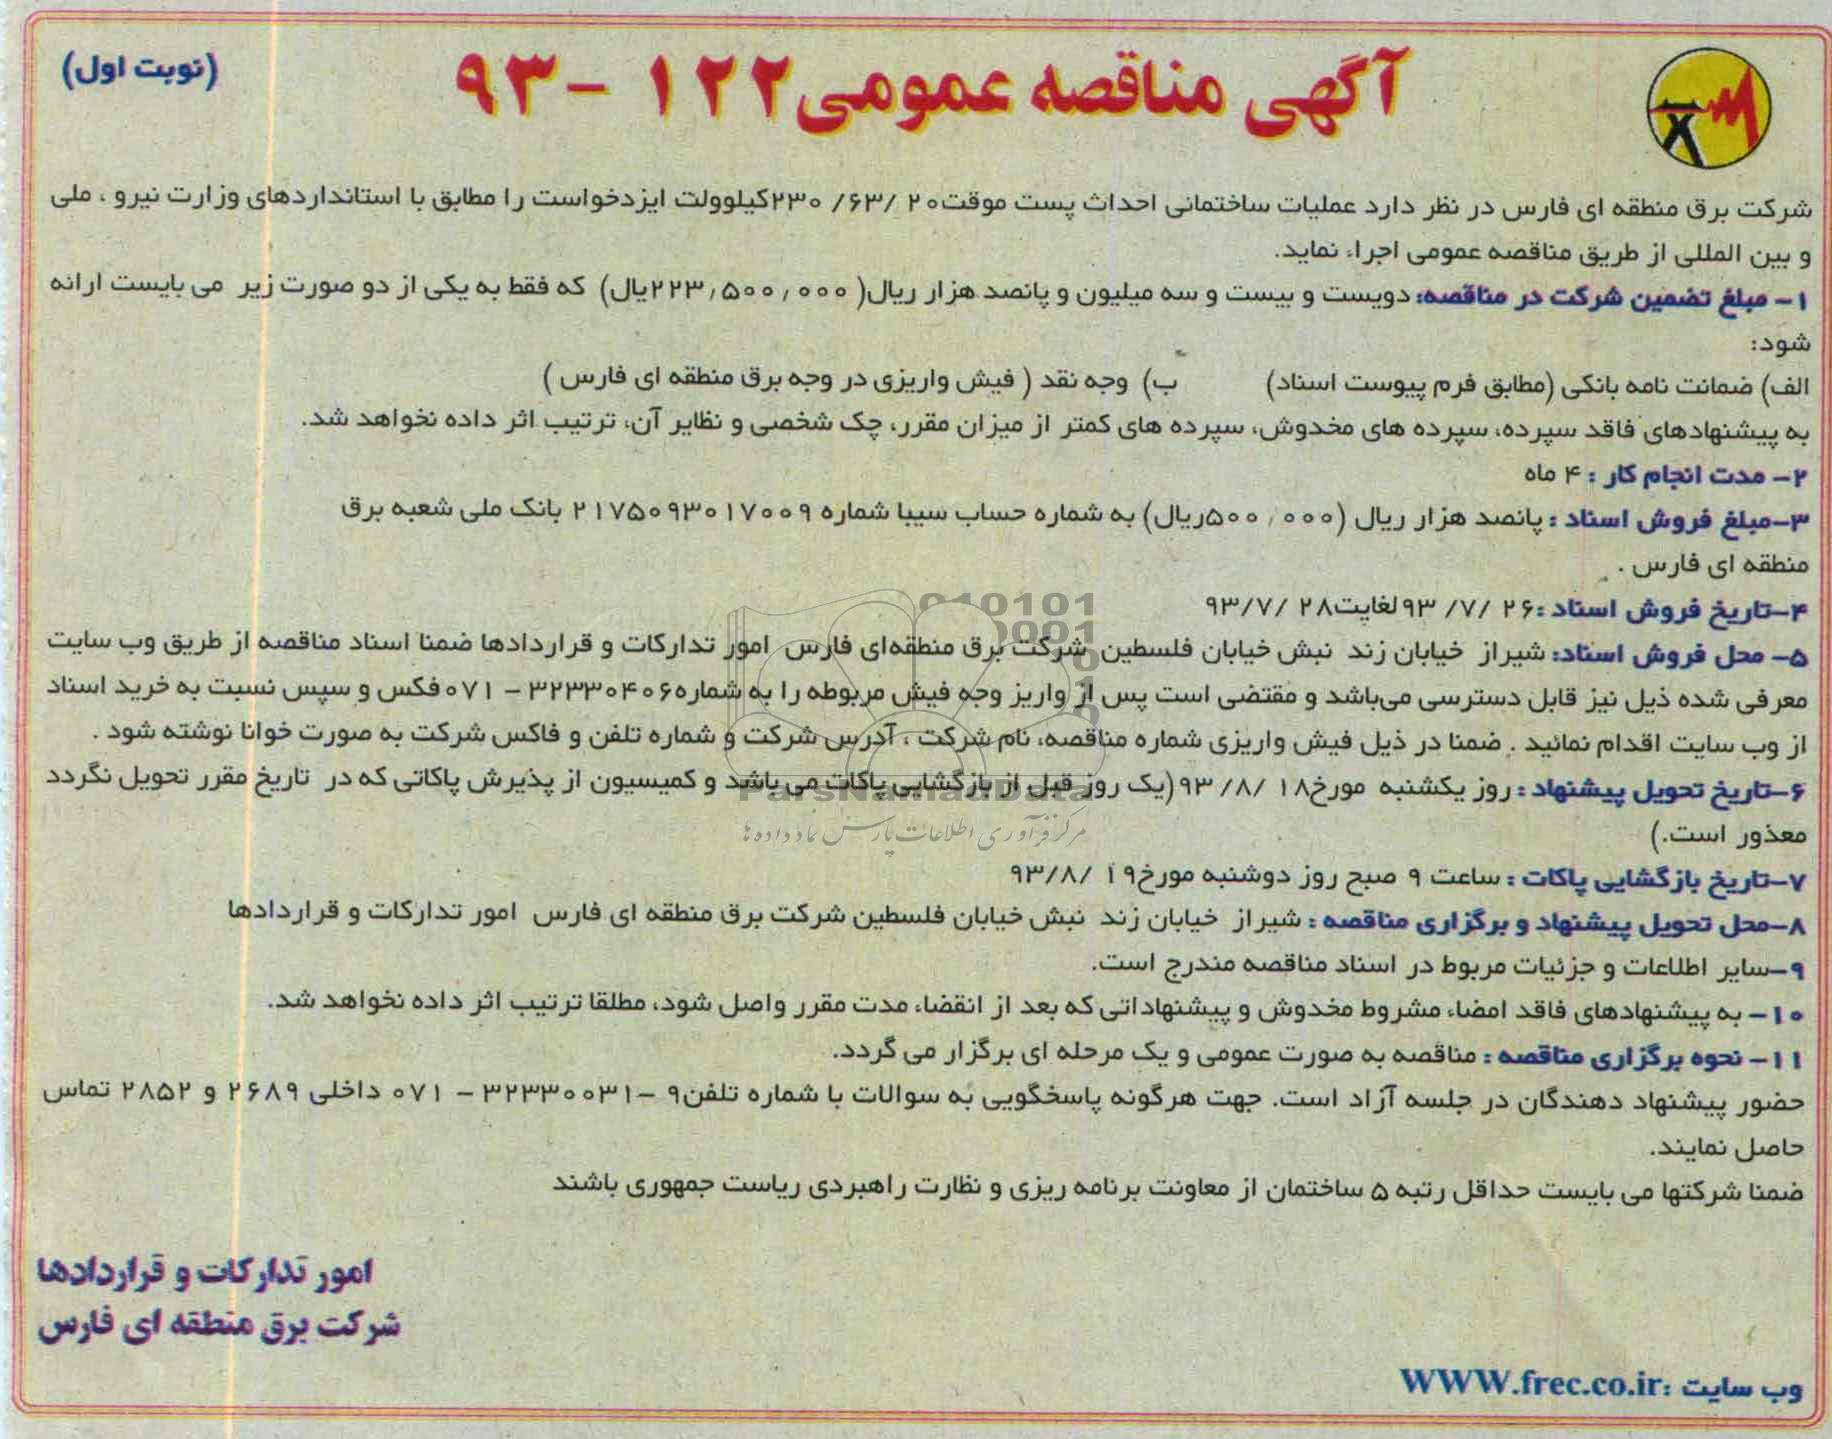 آگهی مناقصه عمومی ۱۲۲ - ۹۳
(نوبت اول)
شرکت برق منطقه ای فارس در نظر دارد عملیات ساختمانی احداث پست موقت ۲۰ /۶۳/ ۲۳۰کیلوولت ایزدخواست را مطابق با استانداردهای وزارت نیرو ، ملی
و بین المللی از طریق مناقصه عمومی اجراء نماید.
۱- مبلغ تضمین شرکت در مناقصه: دویست و بیست و سه میلیون و پانصد هزار ریال( ۲۲۳,۵۰۰,۰۰۰یال) که فقط به یکی از دو صورت زیر می بایست ارائه
شود:
الف) ضمانت نامه بانکی (مطابق فرم پیوست اسناد) ب) وجه نقد ( فیش واریزی در وجه برق منطقه ای فارس )
به پیشنهادهای فاقد سپرده، سپرده های مخدوش، سپرده های کمتر از میزان مقرر، چک شخصی و نظایر آن، ترتیب اثر داده نخواهد شد.
۲- مدت انجام کار : ۴ ماه
۳-مبلغ فروش اسناد : پانصد هزار ریال (۵۰۰,۰۰۰ریال) به شماره حساب سیبا شماره ۲۱۷۵۰۹۳۰۱۷۰۰۹ بانک ملی شعبه برق
منطقه ای فارس .
۴-تاریخ فروش اسناد :۲۶ /۷/ ۹۳ لغایت۲۸ /۹۳/۷
۵- محل فروش اسناد: شیراز خیابان زند نبش خیابان فلسطین شرکت برق منطقه‌ای فارس امور تدارکات و قراردادها ضمنا اسناد مناقصه از طریق وب سایت
معرفی شده ذیل نیز قابل دسترسی می‌باشد و مقتضی است پس از واریز وجه فیش مربوطه را به شماره۳۲۳۳۰۴۰۶ - ۰۷۱ فکس و سپس نسبت به خرید اسناد
از وب سایت اقدام نمائید . ضمنا در ذیل فیش واریزی شماره مناقصه، نام شرکت ، آدرس شرکت و شماره تلفن و فاکس شرکت به صورت خوانا نوشته شود .
۶-تاریخ تحویل پیشنهاد : روز یکشنبه مورخ۱۸ /۸/ ۹۳ (یک روز قبل از بازگشایی پاکات می باشد و کمیسیون از پذیرش پاکاتی که در تاریخ مقرر تحویل نگردد
معذور است.)
۷-تاریخ بازگشایی پاکات : ساعت ۹ صبح روز دوشنبه مورخ۱۹ /۹۳/۸
۸-محل تحویل پیشنهاد و برگزاری مناقصه : شیراز خیابان زند نبش خیابان فلسطین شرکت برق منطقه ای فارس امور تدارکات و قراردادها
۹-سایر اطلاعات و جزئیات مربوط در اسناد مناقصه مندرج است.
۱۰- به پیشنهادهای فاقد امضاء، مشروط مخدوش و پیشنهاداتی که بعد از انقضاء مدت مقرر واصل شود، مطلقا ترتیب اثر داده نخواهد شد.
۱۱- نحوه برگزاری مناقصه : مناقصه به صورت عمومی و یک مرحله ای برگزار می گردد.
حضور پیشنهاد دهندگان در جلسه آزاد است. جهت هرگونه پاسخگویی به سوالات با شماره تلفن۹ -۳۲۳۳۰۰۳۱ - ۰۷۱ داخلی ۲۶۸۹ و ۲۸۵۲ تماس
حاصل نمایند.
ضمنا شرکتها می بایست حداقل رتبه ۵ ساختمان از معاونت برنامه ریزی و نظارت راهبردی ریاست جمهوری باشند
امور تدارکات و قراردادها
شرکت برق منطقه ای فارس
وب سایت :WWW.frec.co.ir
ParsNamadData
مرکز فرآوری اطلاعات پارس نماد داده ها